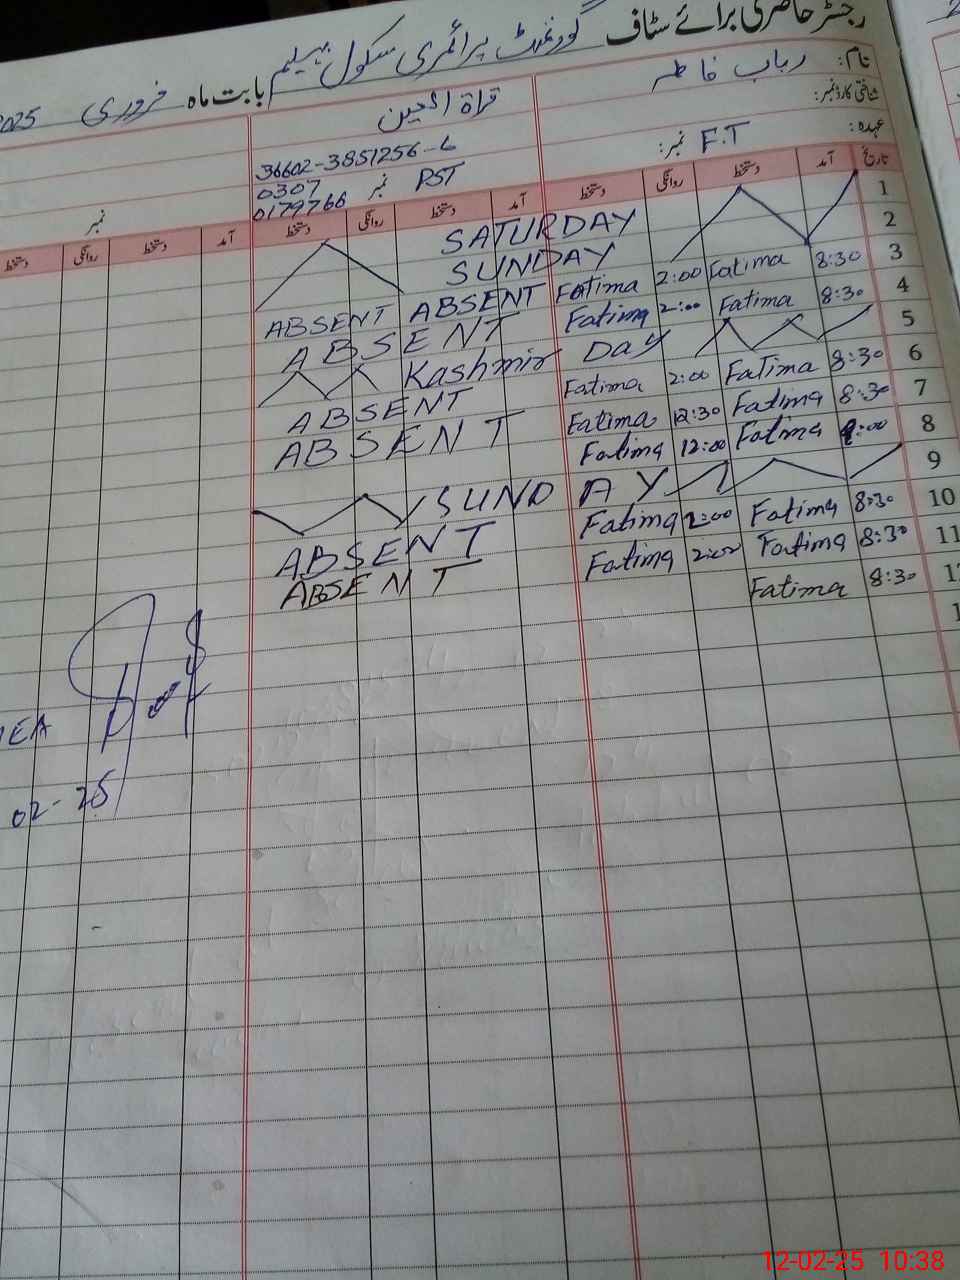 رجسٹر حاضری برائے سٹاف گورنمنٹ پرائمری سکول بابت ماہ فروری 2025
نام: رباب فاطمہ
قراۃ العین
شناختی کارڈ نمبر:
36602-3851256-6
عہدہ: F.T نمبر:
PST نمبر 0307
0179766
نمبر
تاریخ آمد دستخط روانگی دستخط آمد دستخط روانگی دستخط آمد دستخط روانگی دستخط
1 SATURDAY
2 SUNDAY
3 8:30 Fatima 2:00 Fatima ABSENT ABSENT
4 8:30 Fatima 2:00 Fatima ABSENT
5 Kashmir Day
6 8:30 Fatima 2:00 Fatima ABSENT
7 8:30 Fatima 12:30 Fatima ABSENT
8 9:00 Fatima 12:00 Fatima
9 SUNDAY
10 8:30 Fatima 2:00 Fatima ABSENT
11 8:30 Fatima 2:00 Fatima ABSENT
8:30 Fatima
EA
02-25
12-02-25 10:38